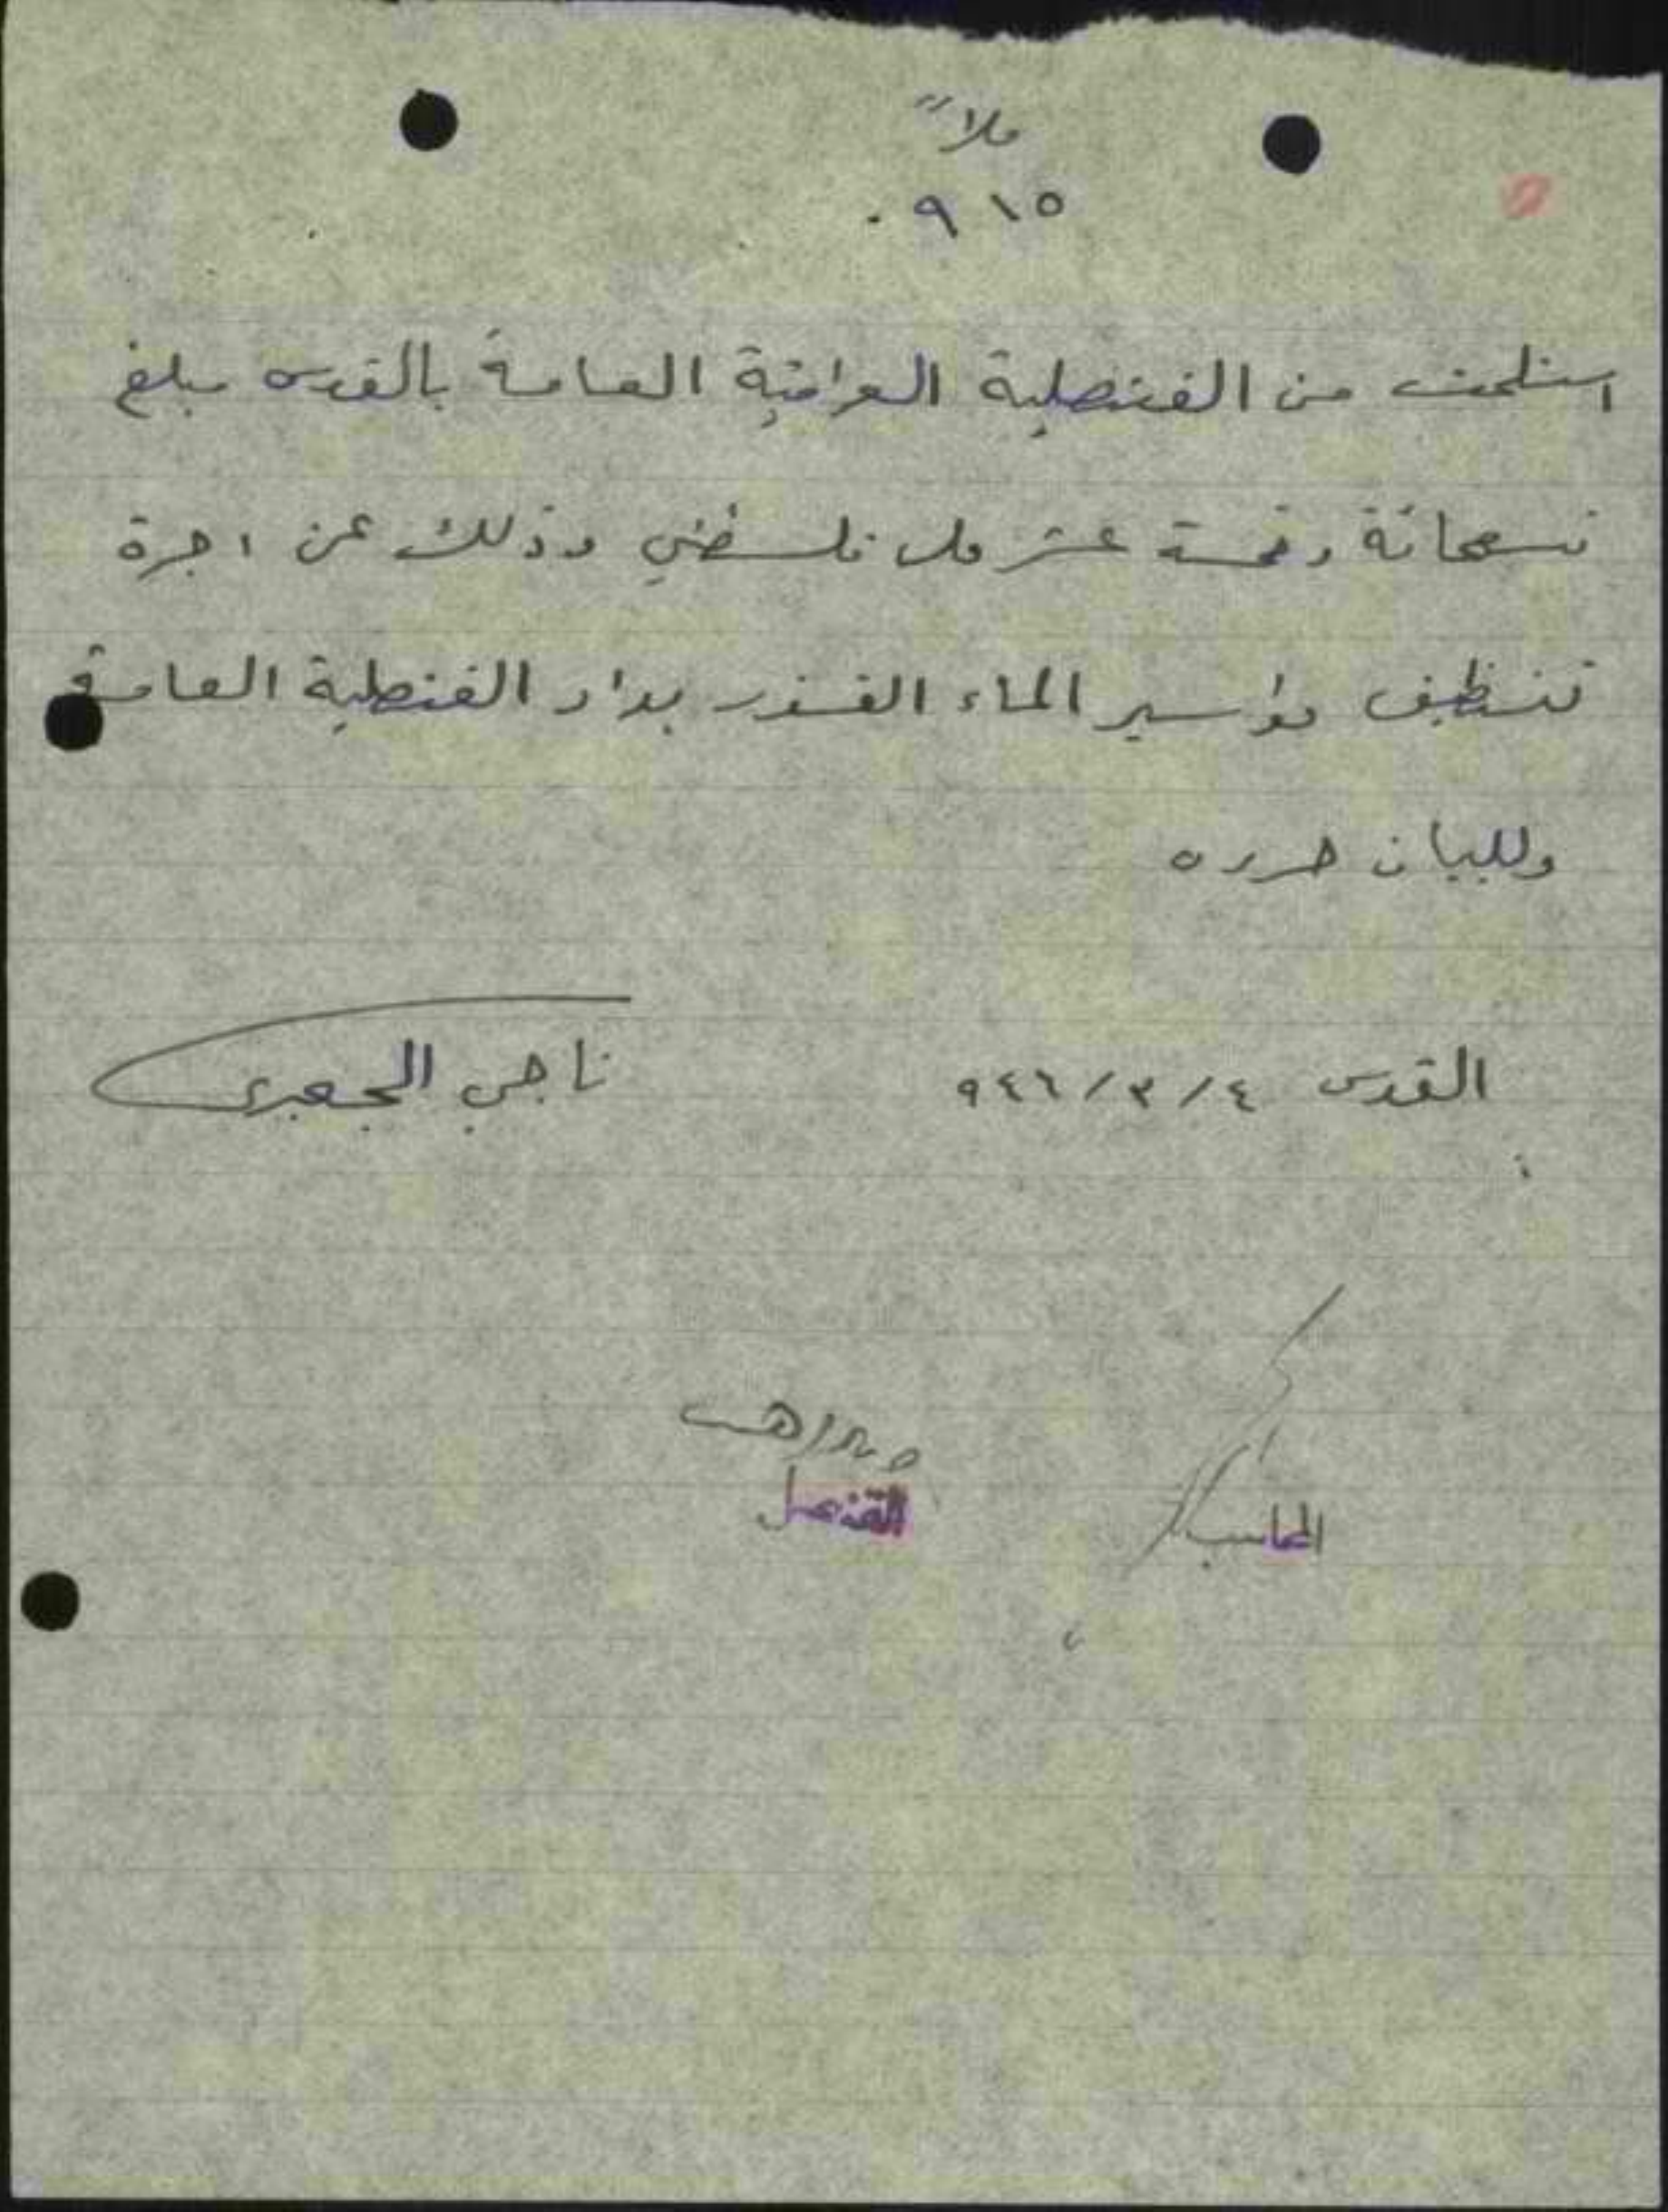 ملاً
٩١٥٠
استلمت من القنصلية العراقية العامة بالقدس مبلغ
تسعمائة وخمسة عشر مل فلسطيني وذلك عن اجرة
تنظيف مواسير الماء القذر بدار القنصلية العامة
وللبيان حرره
القدس ٤/٣/٩٤٦ ناجي الجعبري
المحاسب القنصل